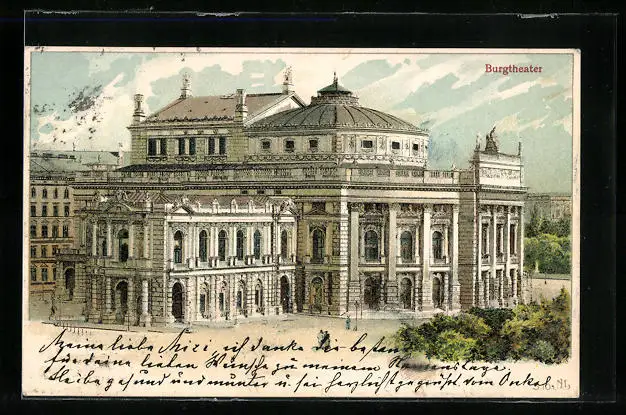 Burgtheater
Meine liebe Mizi, ich danke die besten
für deine lieben Wünsche zu meinem Namenstage
bleibe gesund und munter u. sei herzlichst gegrüßt vom Onkel